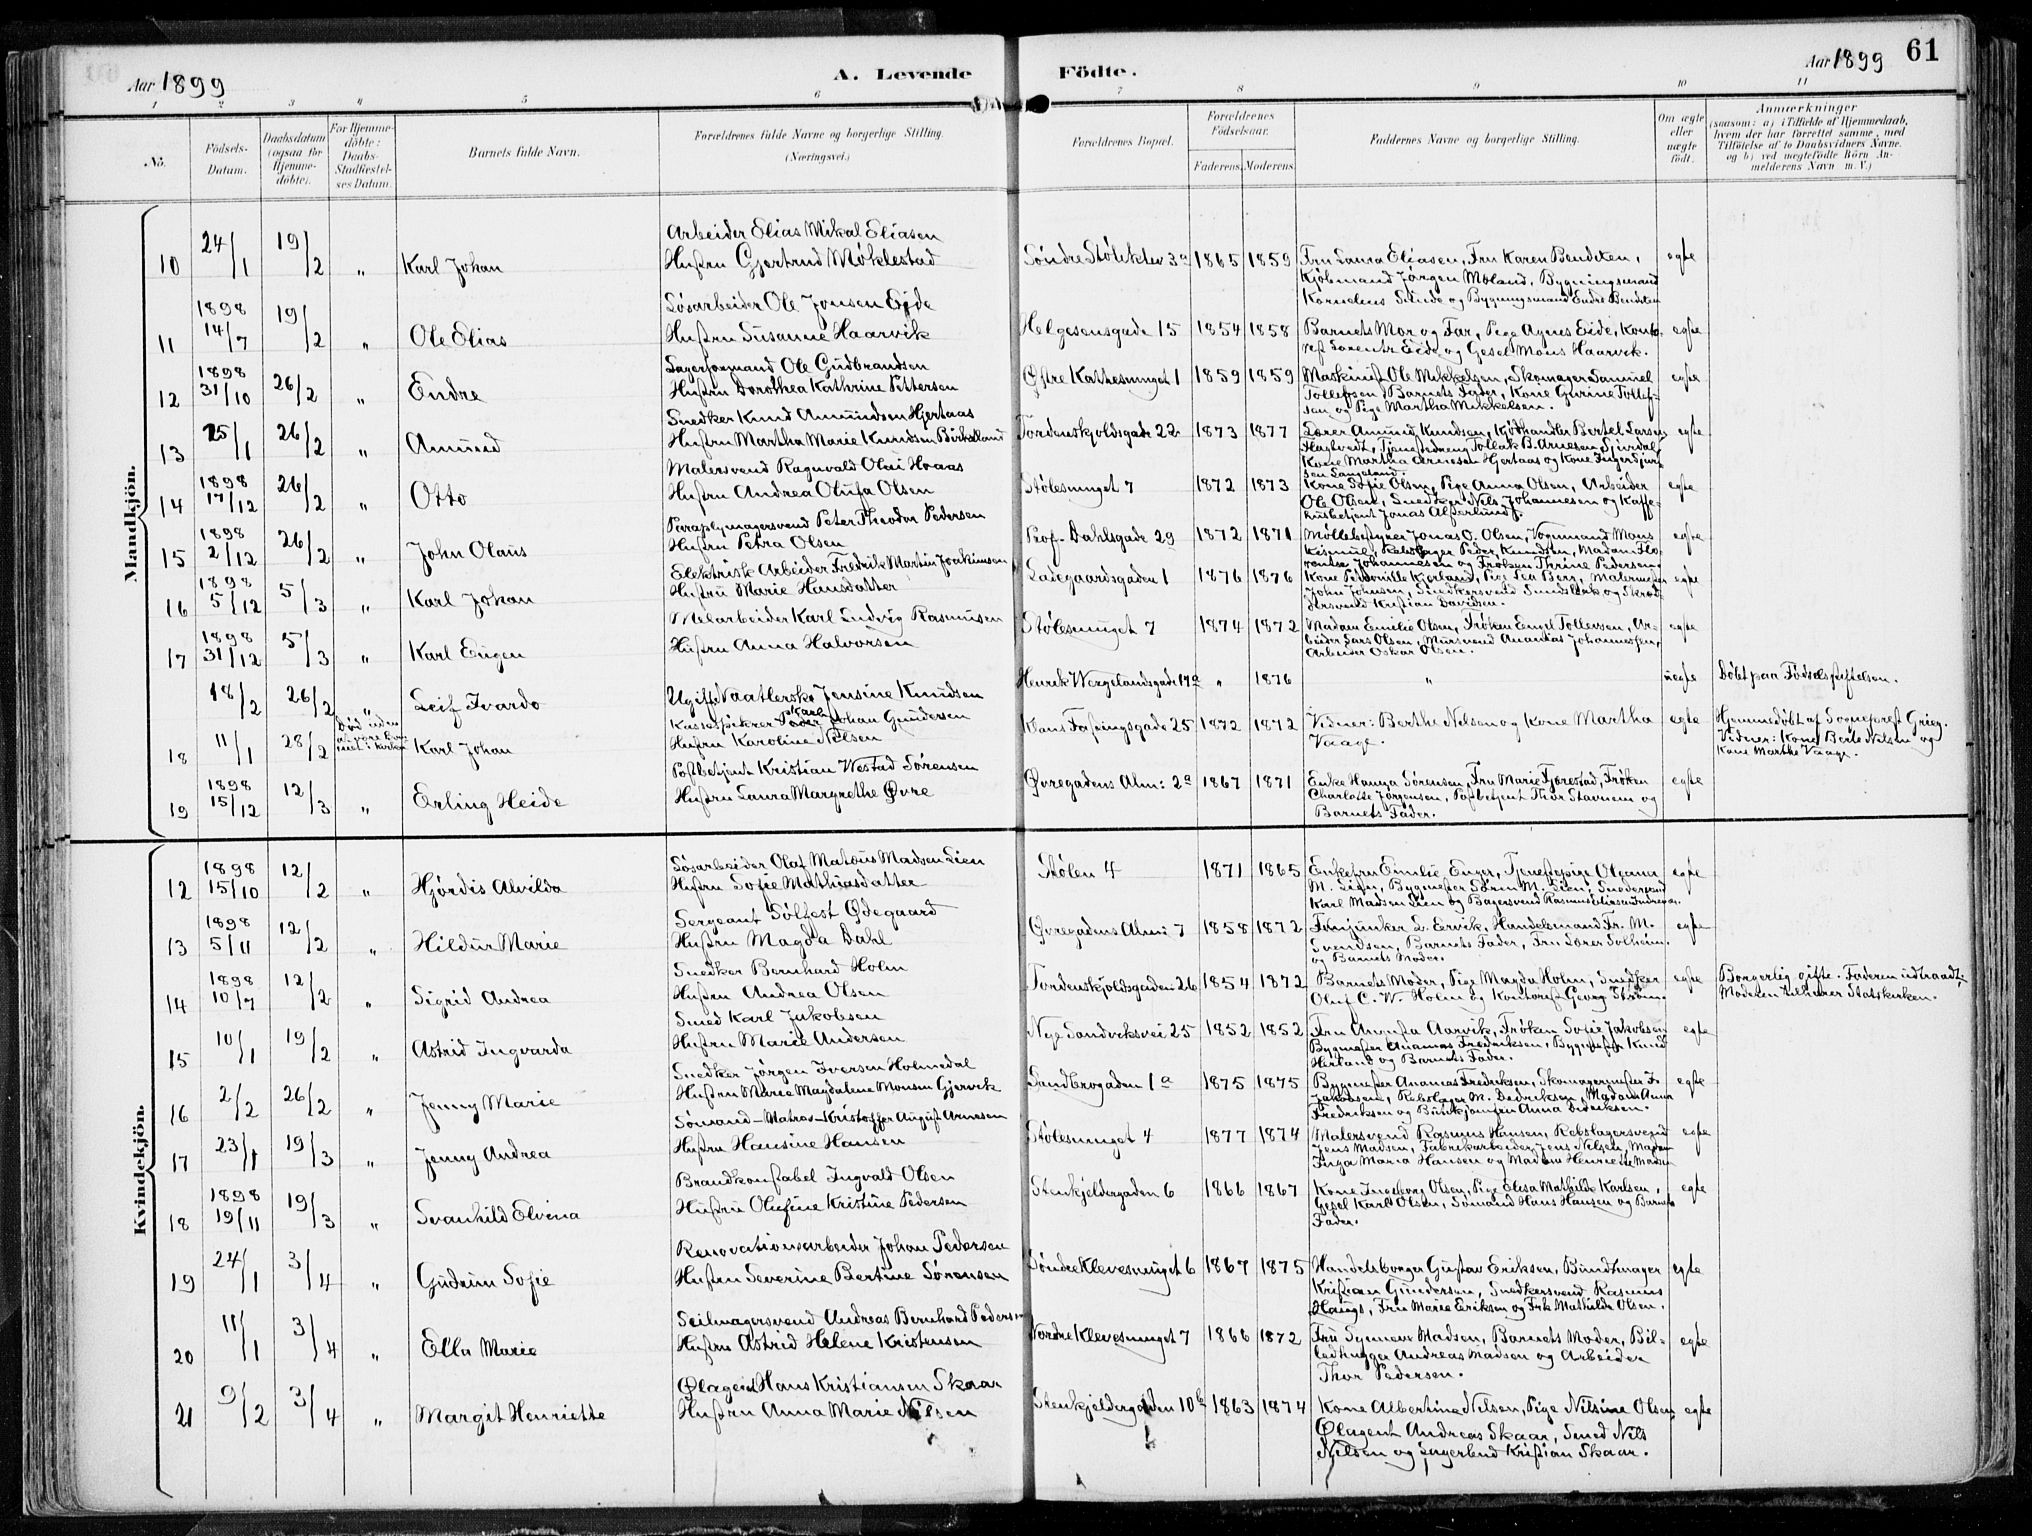 Aar 1899
A. Levende Födte.
Aar 1899 61
1 2 3 4 5 6 7 8 9 10 11
No.
Födsels-Datum.
Daabsdatum (ogsaa for Hjemmedöbte).
For Hjemmedöbte: Daabs-Stadfæstelses Datum.
Barnets fulde Navn.
Forældrenes fulde Navne og borgerlige Stilling. (Næringsvei.)
Forældrenes Bopæl.
Forældrenes Födselsaar. Faderens. Moderens.
Faddernes Navne og borgerlige Stilling.
Om ægte eller uægte födt.
Anmærkninger (saasom: a) i Tilfælde af Hjemmedaab, hvem der har forrettet samme, med Tilföielse af to Daabsvidners Navne, og b) ved uægtefödte Börn Anmelderens Navn m. V.)
Mandkjön.
10 24/1 19/2 " Karl Johan
Arbeider Elias Mikal Eliasen
Hustru Gjertrud Møklestad
Søndre Støleklev 3a 1865 1859
Fru Laura Eliasen, Fru Karen Bendixen,
Kjøbmand Jørgen Møland, Bygningsmand
Kornelius Sunde og Bygningsmand Endre Bendixen
egte
11 1898 14/7 19/2 " Ole Elias
Løsarbeider Ole Jonsen Eide
Hustru Susanne Haarvik
Helgesensgade 15 1854 1858
Barnets Mor og Far, Pige Agnes Eide, Konto-
rist Lorentz Eide og Gesel Mons Haarvik.
egte
12 1898 31/10 26/2 " Endre
Lagerformand Ole Gudbrandsen
Hustru Dorothea Kathrine Pettersen
Østre Kathesmuget 1 1859 1859
Maskinist Ole Mikkelsen, Skomager Samuel
Tollefsen, Barnets Fader, Kone Gurine Tollef-
sen og Pige Martha Mikkelsen.
egte
13 25/1 26/2 " Amund
Snedker Knud Amundsen Hjertaas
Hustru Martha Marie Knudsen Birkeland
Tordenskjoldsgade 22 1873 1877
Lærer Amund Knudsen, Kjødhandler Bertel Larsen
Tjenestedreng Tollak B. Arnesen
Kone Martha Arnesen Hjertaas og Kone
egte
14 1898 17/12 26/2 " Otto
Malersvend Ragnvald Olai Hvaas
Hustru Andrea Olufa Olsen
Stølesmuget 7 1872 1873
Kone Sofie Olsen, Pige Anna Olsen, Arbeider
Ole Olsen, Snedker Nils Johannesen og Kaffe-
husbetjent Jonas Alsterlund.
egte
15 1898 2/12 26/2 " John Olaus
Paraplymagersvend Peter Theodor Pedersen
Hustru Petra Olsen
Prof. Dahlsgade 29 1872 1871
Møllebestyrer Jonas O. Olsen, Vognmand Mons
Rebslager Peder Knudsen, Madam Flo-
rentse Johannesen og Frøken Thrine Pedersen.
egte
16 1898 5/12 5/3 " Karl Johan
Elektrisk Arbeider Fredrik Martin Joakimsen
Hustru Marie Hansdatter
Ladegaardsgaden 1 1876 1876
Kone Pernille Kjerland, Pige Lea Berg, Malermester
John Johnsen, Snedkersvend og Skræd-
dersvend Kristian Davidsen.
egte
17 1898 31/12 5/3 " Karl Eugen
Melarbeider Karl Ludvig Rasmusen
Hustru Anna Halvorsen
Stølesmuget 7 1874 1872
Madam Emilie Olsen, Frøken Emil Tollevsen, Ar-
beider Lars Olsen, Mursvend Ananias Johannesen,
Arbeider Oskar Olsen.
egte
18/2 26/2 " Leif Ivardo
Ugift Vaatlerske Jensine Knudsen
Henrik Wergelandsgade 17a " 1876
"
uegte
Døbt paa Fødselsstiftelsen.
18 11/1 28/2 Død uden at være kommet i kirken Karl Johan
Kassesperrer Peder Karl Johan Gundersen
Hustru Karoline Nilsen
Hans Fastingsgade 25 1872 1872
Vidner: Berthe Nelson og Kone Martha
Vaage.
egte
Hjemmedøbt af Sogneprest Grieg.
Vidner: Kone Berte Nilsen og
Kone Marthe Vaage.
19 1898 15/12 12/3 " Erling Heide
Postbetjent Kristian Westad Sørensen
Hustru Laura Margrethe Øvre
Øvregadens Alm: 2a 1867 1871
Enke Hanna Sørensen, Fru Marie Fjærestad, Frøken
Charlotte Jørgensen, Postbetjent Thor Stavnem og
Barnets Fader.
egte
Kvindekjön.
12 1898 15/10 12/2 " Hjørdis Alvilda
Løsarbeider Olaf Mateus Madsen Lien
Hustru Sofie Mathiasdatter
Stølen 4 1871 1865
Enkefru Emilie Enger, Tjenestepige Oleana
M. Lien, Bygmester Søren M. Lien, Snedersvend
Karl Madsen Lien og Bagersvend Rasmus Eliasen
egte
13 1898 5/11 12/2 " Hildur Marie
Sergeant Sølfest Ødegaard
Hustru Magda Dahl
Øvregadens Alm: 7 1858 1872
Fanjunker L. Ervik, Handelsmand Fr. M.
Svendsen, Barnets Fader, Fru Lærer Solheim
og Barnets Moder.
egte
14 1898 10/7 12/2 " Sigrid Andrea
Snedker Bernhard Holm
Hustru Andrea Olsen
Tordenskjoldsgaden 26 1854 1872
Barnets Moder, Pige Magda Holm, Snedker
Oluf C. W. Holm og Kontorist Georg Strøm.
egte
Borgerlig gifte. Faderen udtraadt;
Moderen tilhører Statskirken.
15 10/1 19/2 " Astrid Ingvarda
Smed Karl Jakobsen
Hustru Marie Andersen
Nye Sandviksvei 25 1852 1852
Fru Augusta Aarvik, Frøken Sofie Jakobsen
Bygmester Ananias Fredriksen, Bygmester Knud
Herland og Barnets Fader.
egte
16 2/2 26/2 " Jenny Marie
Snedker Jørgen Iversen Holmedal
Hustru Marie Magdalene Monsen Gjervik
Sandbrogaden 1a 1875 1875
Bygmester Ananias Fredriksen, Skomagermester F.
Jakobsen, Rebslager M. Dedriksen, Madam Anna
Fredriksen og Butikjomfru Anna Didriksen.
egte
17 23/1 19/3 " Jenny Andrea
Sømand-Matros-Kristoffer August Arnesen
Hustru Hansine Hansen
Stølesmuget 4 1877 1874
Malersvend Rasmus Hansen, Rebslagersvend
Jens Madsen, Fabrikarbeider Jens Nilsen, Madam
Inga Maria Hansen og Madam Henriette Madsen
egte
18 1898 19/11 19/3 " Svanhild Elvina
Brandkonstabel Ingvald Olsen
Hustru Olufine Kristine Pedersen
Stenkjeldergaden 6 1866 1867
Kone Ingeborg Olsen, Pige Elisa Mathilde Karlsen,
Gesel Karl Olsen, Sømand Hans Hansen og Barnets
Fader.
egte
19 24/1 3/4 " Gudrun Sofie
Renovationsarbeider Johan Pedersen
Hustru Severine Bertine Sørensen
Søndre Klevesmuget 6 1867 1875
Handelsborger Gustav Eriksen, Bundtmager
Kristian Gundersen, Snedkersvend Rasmus
Haugs, Fru Marie Eriksen og Frk Mathilde Olsen.
egte
20 11/1 3/4 " Ella Marie
Seilmagersvend Andreas Bernhard Pedersen
Hustru Astrid Helene Kristensen
Nordre Klevesmuget 7 1868 1872
Fru Synneve Madsen, Barnets Moder, Bil-
ledhugger Andreas Madsen og Arbeider
Thor Pedersen.
egte
21 9/2 3/4 " Margit Henriette
Ølagent Hans Kristiansen Skaar
Hustru Anna Marie Nilsen
Stenkjeldergaden 10b 1863 1874
Kone Albertine Nilsen, Pige Nilsine Olsen
Ølagent Andreas Skaar, Smed Nils
Nilsen og Lagerbud Kristian Skaar.
egte